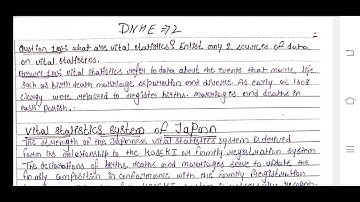 DNHE ⇒ 2
Question 1(a) What are vital statistics? Enlist any 2 sources of data
on vital statistics.
Answer 1(a) Vital statistics refer to data about the events that make life
such as birth death marriage separation and divorce. As early as
clergy were required to register births. marriages and deaths in
each parish.
Vital statistics system of Japan
The strength of the Japanese vital statistics system is derived
form its relationship to the KOSEKI or Family registration system
The declarations of births, deaths and marriages serve to update the
family composition in conformance with the Family Registration